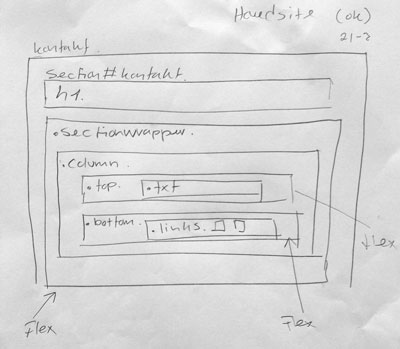 (ok)
21-2
kontakt.
section#kontakt.
h1.
.sectionwrapper.
.column.
.top. .txt
.bottom. .links.
flex
Flex
Flex